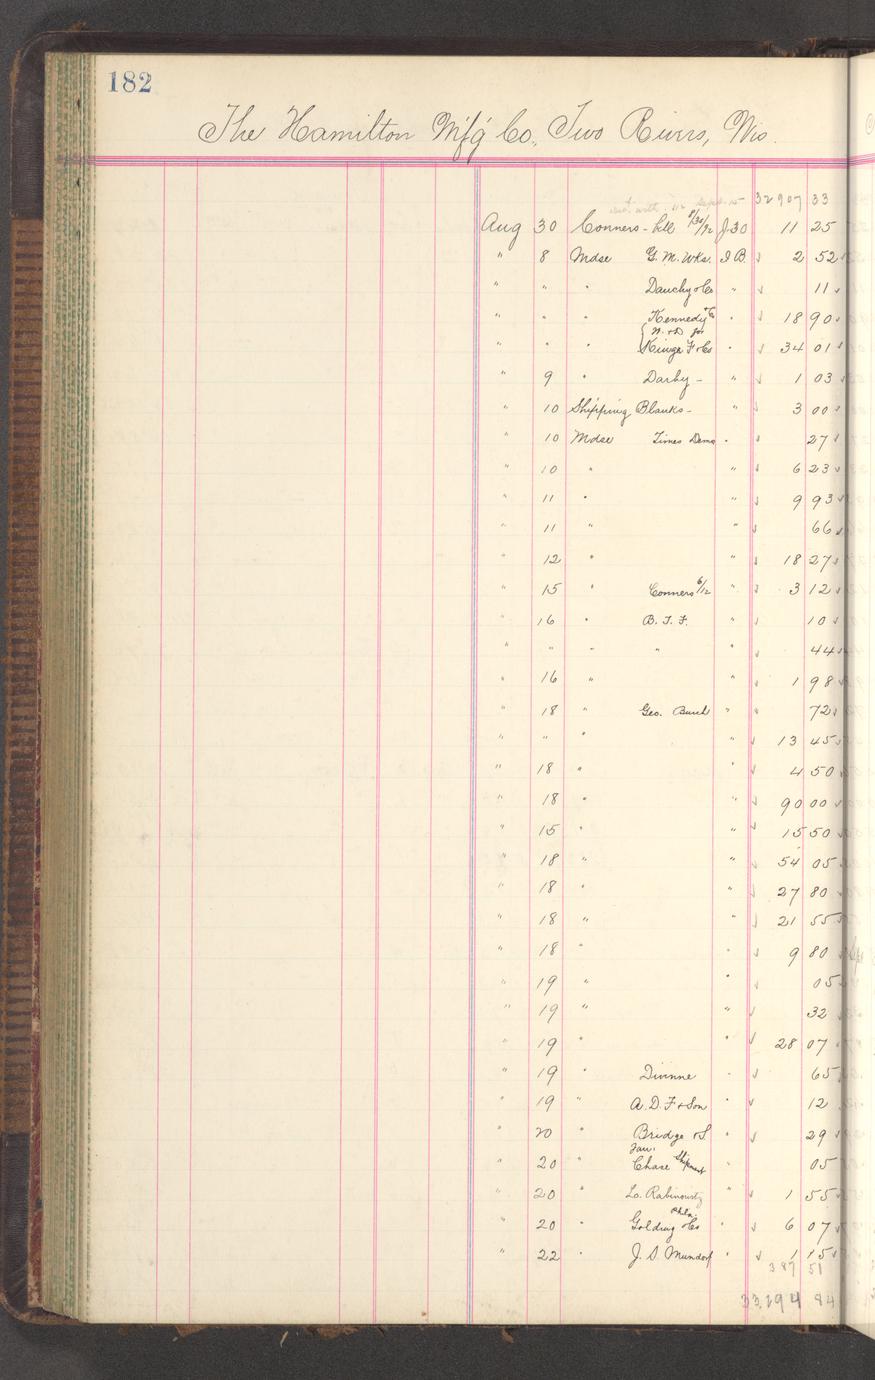 182
The Hamilton M'f'g Co., Two Rivers, Wis.
32 907 33
Aug 30 Conners - 8/30/92 J 30 11 25
" 8 Mdse G. M. Wks. I B. 2 52
" " " Dauchy & Co " 11
" " " Kennedy & Co " 18 90
W. & D. for
" " " Kinge F & Co " 34 01
" 9 " Darby - " 1 03
" 10 Shipping Blanks - " 3 00
" 10 Mdse Times Demo " 27
" 10 " " 6 23
" 11 " " 9 93
" 11 " " 66
" 12 " " 18 27
" 15 " Conners 6/12 " 3 12
" 16 " B. T. F. " 10
" " " " " 44
" 16 " " 1 98
" 18 " Geo. Bunch " 72
" " " " 13 45
" 18 " " 4 50
" 18 " " 90 00
" 15 " " 15 50
" 18 " " 54 05
" 18 " " 27 80
" 18 " " 21 55
" 18 " " 9 80
" 19 " " 05
" 19 " " 32
" 19 " " 28 07
" 19 " Divinne " 65
" 19 " A. D. F & Son " 12
" 20 " Bridge & S. " 29
Jan.
" 20 " Chase Shipment " 05
" 20 " Lo. Rabinowitz " 1 55
Phila.
" 20 " Golding & Co " 6 07
" 22 " J. S Mundorf " 1 15
387 51
33,294 84